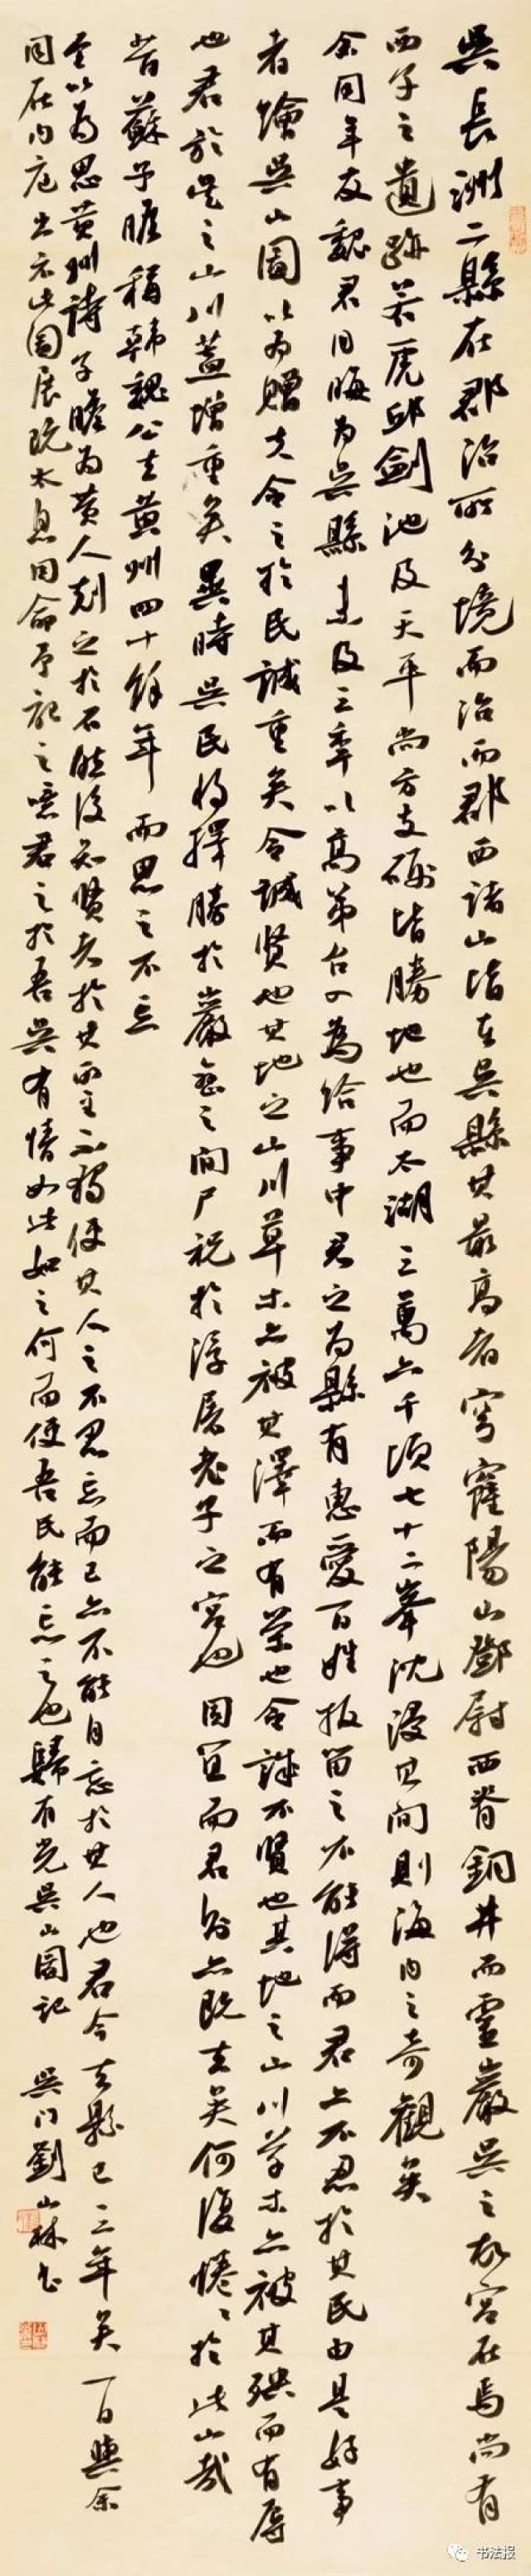 吳長洲二縣在郡治所分境而治而郡西諸山皆在吳縣其最高者穹窿陽山鄧尉西脊銅井而靈巖吳之故宮在焉尚有
西子之遺跡若虎邱劍池及天平尚方支硎皆勝地也而太湖三萬六千頃七十二峯沈浸其間則海內之奇觀矣
余同年友魏君用晦為吳縣未及三年以高第召入為給事中君之為縣有惠愛百姓扳留之不能得而君亦不忍於其民由是好事
者繪吳山圖以為贈夫令之於民誠重矣令誠賢也其地之山川草木亦被其澤而有榮也令誠不賢也其地之山川草木亦被其殃而有辱
也君於吳之山川蓋增重矣異時吳民將擇勝於巖巒之間尸祝於浮屠老子之宮也固宜而君則亦既去矣何復惓惓於此山哉
昔蘇子瞻稱韓魏公去黃州四十餘年而思之不忘
至以為思黃州詩子瞻為黃人刻之於石然後知賢者於其所至不獨使其人之不忍忘而已亦不能自忘於其人也君今去縣已三年矣一日與余
同在內庭出示此圖展玩太息因命予記之噫君之於吾吳有情如此如之何而使吾民能忘之也歸有光吳山圖記 吳門劉山林書
书法报